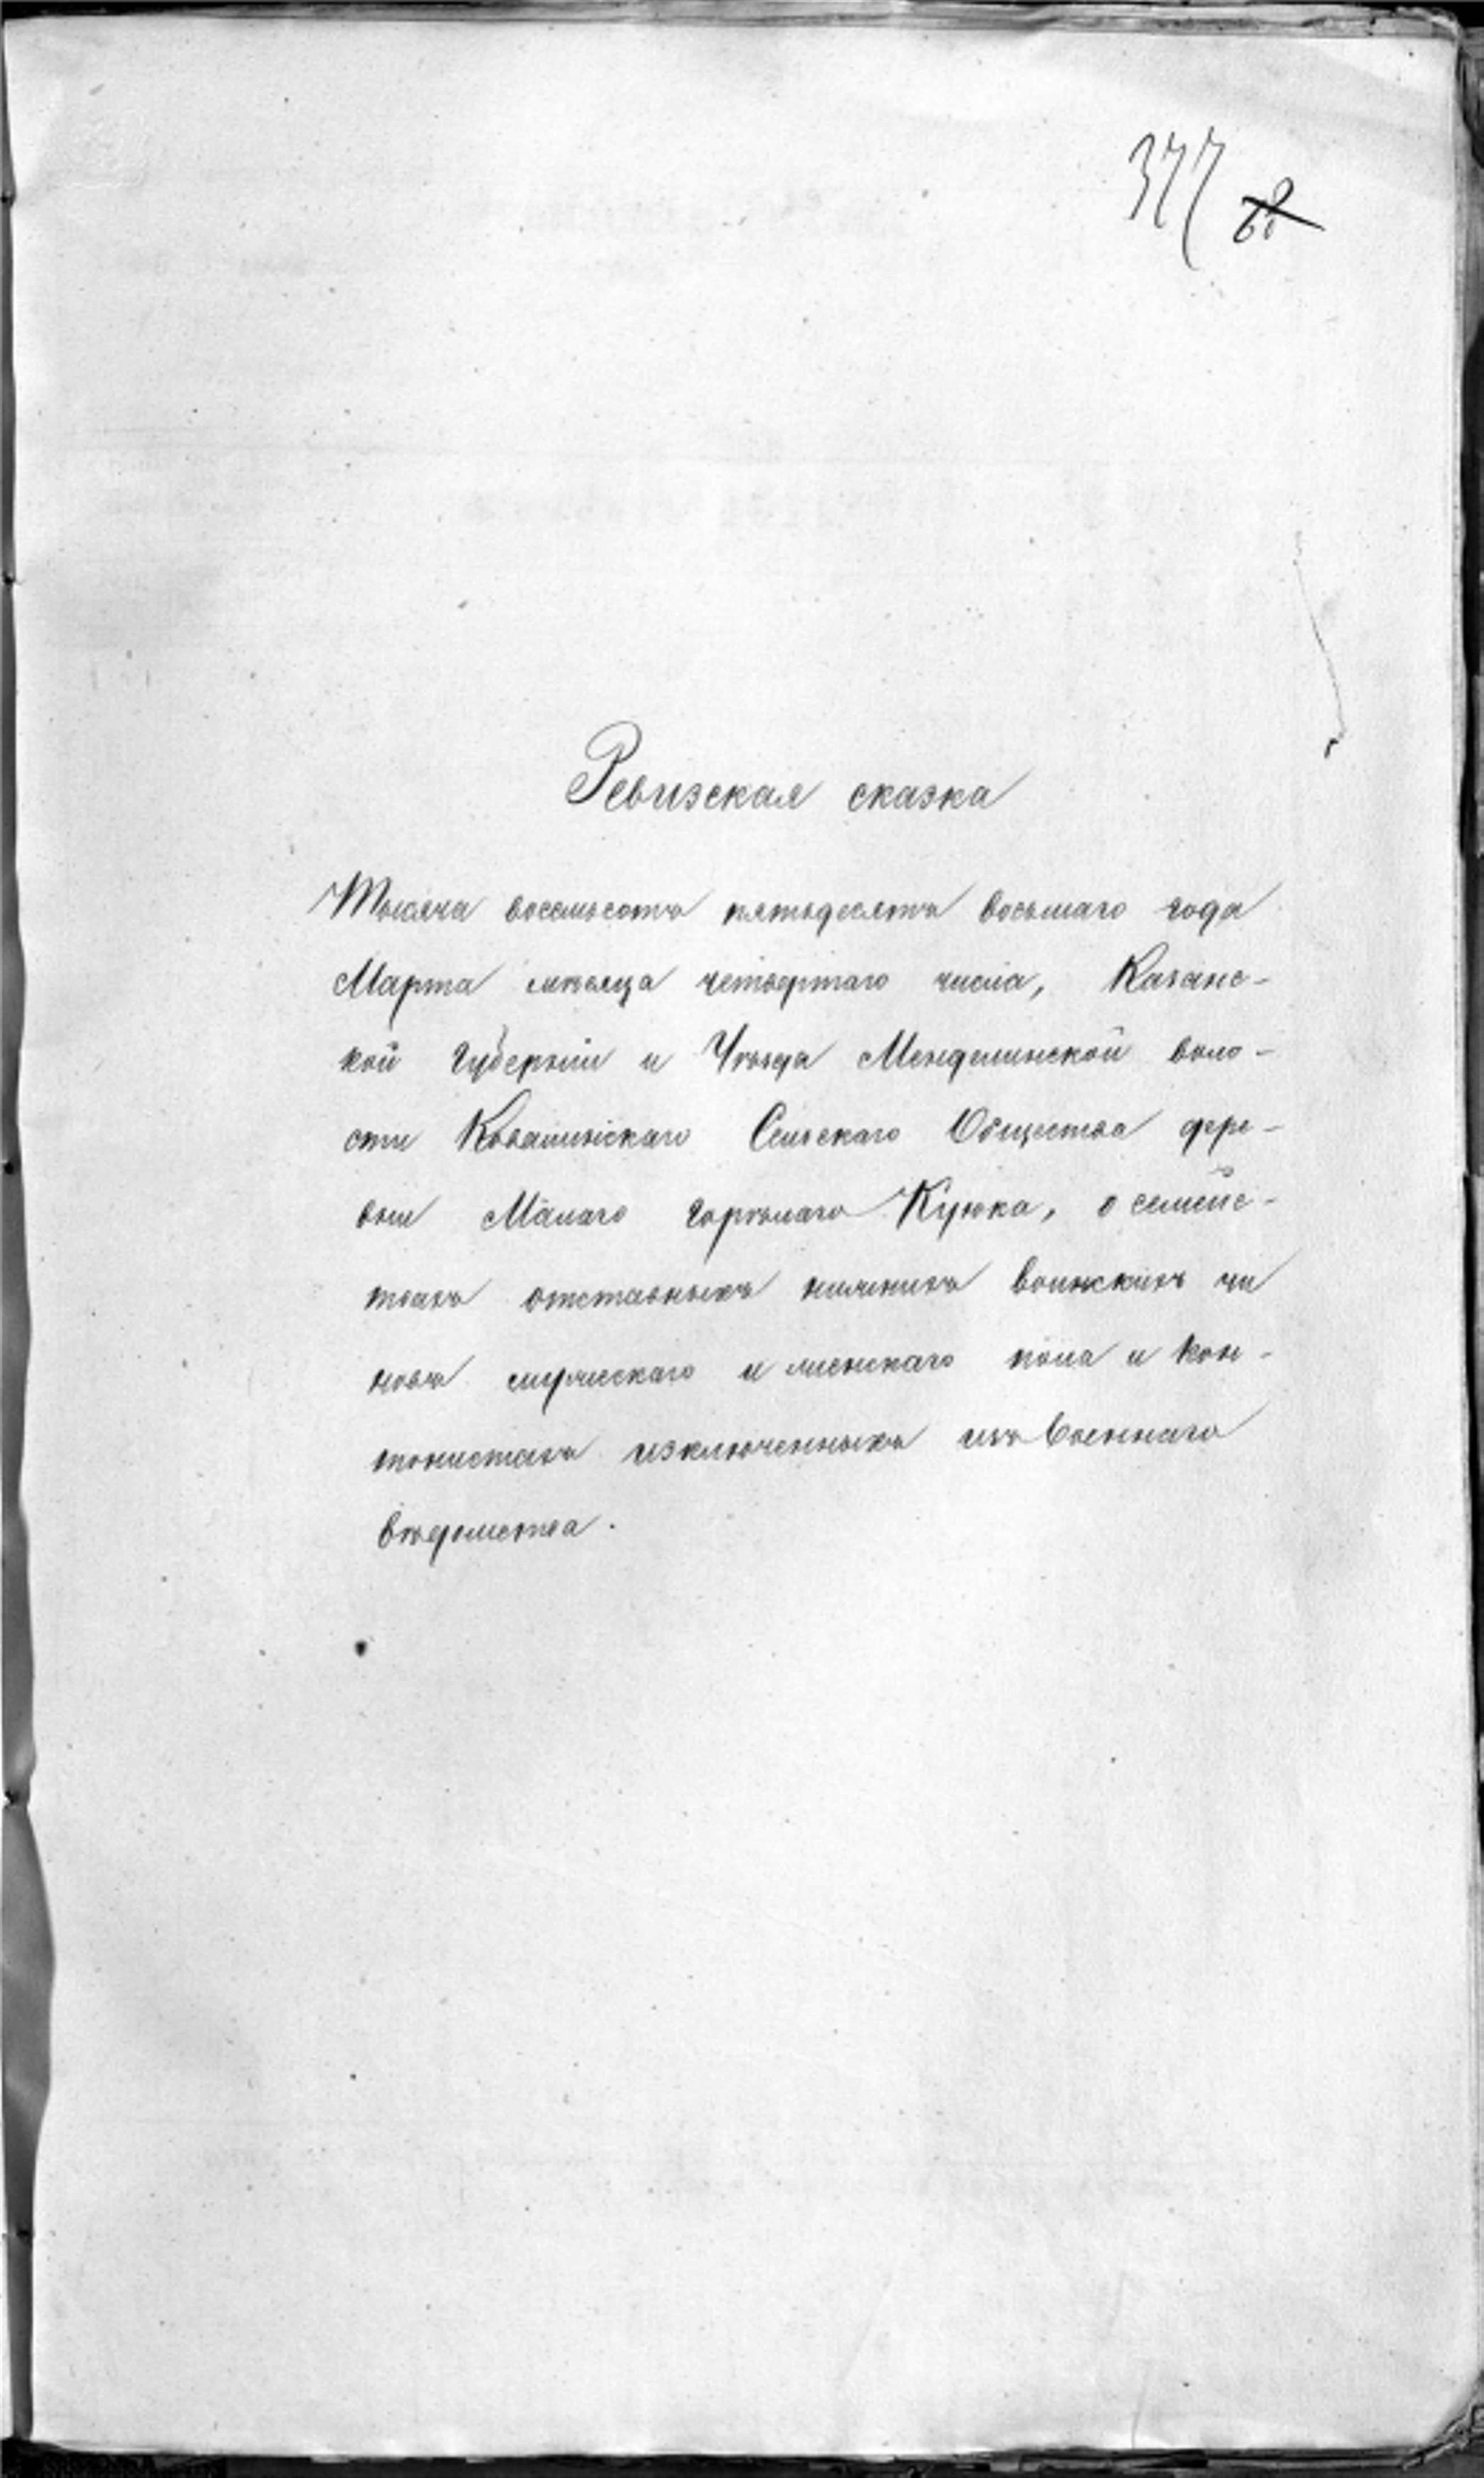 377 68
Ревизская сказка
Тысяча восемьсотъ пятьдесятъ восьмаго года
Марта мѣсяца четвертаго числа, Казанс-
кой Губерніи и Уѣзда Менделинской воло-
сти Ковалинскаго Сельскаго Общества дере-
вни Малаго Горѣлаго Куюка, о семейс-
твахъ отставныхъ нижнихъ воинскихъ чи
новъ мужескаго и женскаго пола и кон-
тонистахъ изключенныхъ изъ Военнаго
вѣдомства.